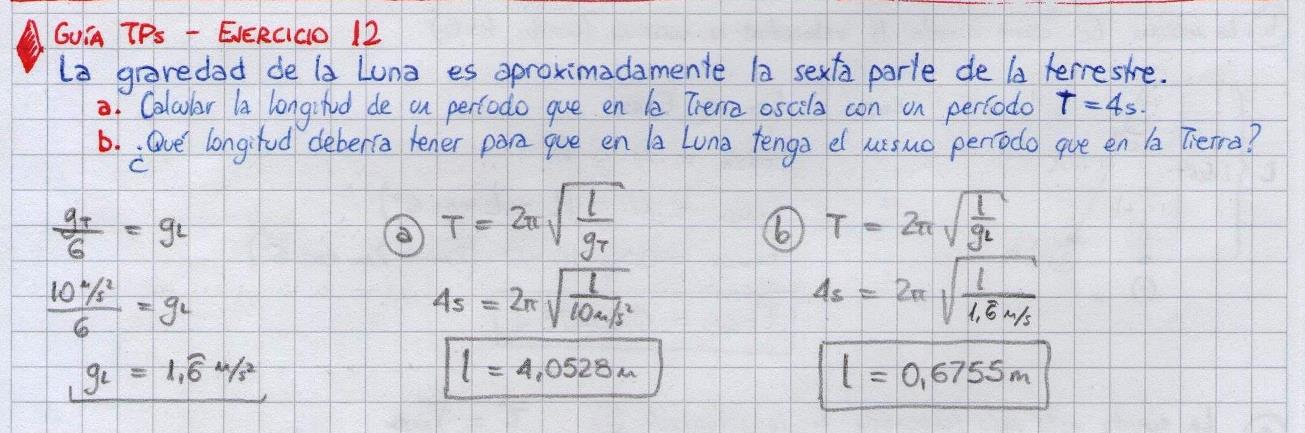 GUÍA TPs - EJERCICIO 12
La gravedad de la Luna es aproximadamente la sexta parte de la terrestre.
a. Calcular la longitud de un período que en la Tierra oscila con un período T = 4s.
b. ¿Qué longitud debería tener para que en la Luna tenga el mismo período que en la Tierra?
gT/6 = gL
10 m/s²/6 = gL
gL = 1,6̂ m/s²
a T = 2π √(l/gT)
4s = 2π √(l/10m/s²)
l = 4,0528m
b T = 2π √(l/gL)
4s = 2π √(l/1,6̂ m/s)
l = 0,6755m